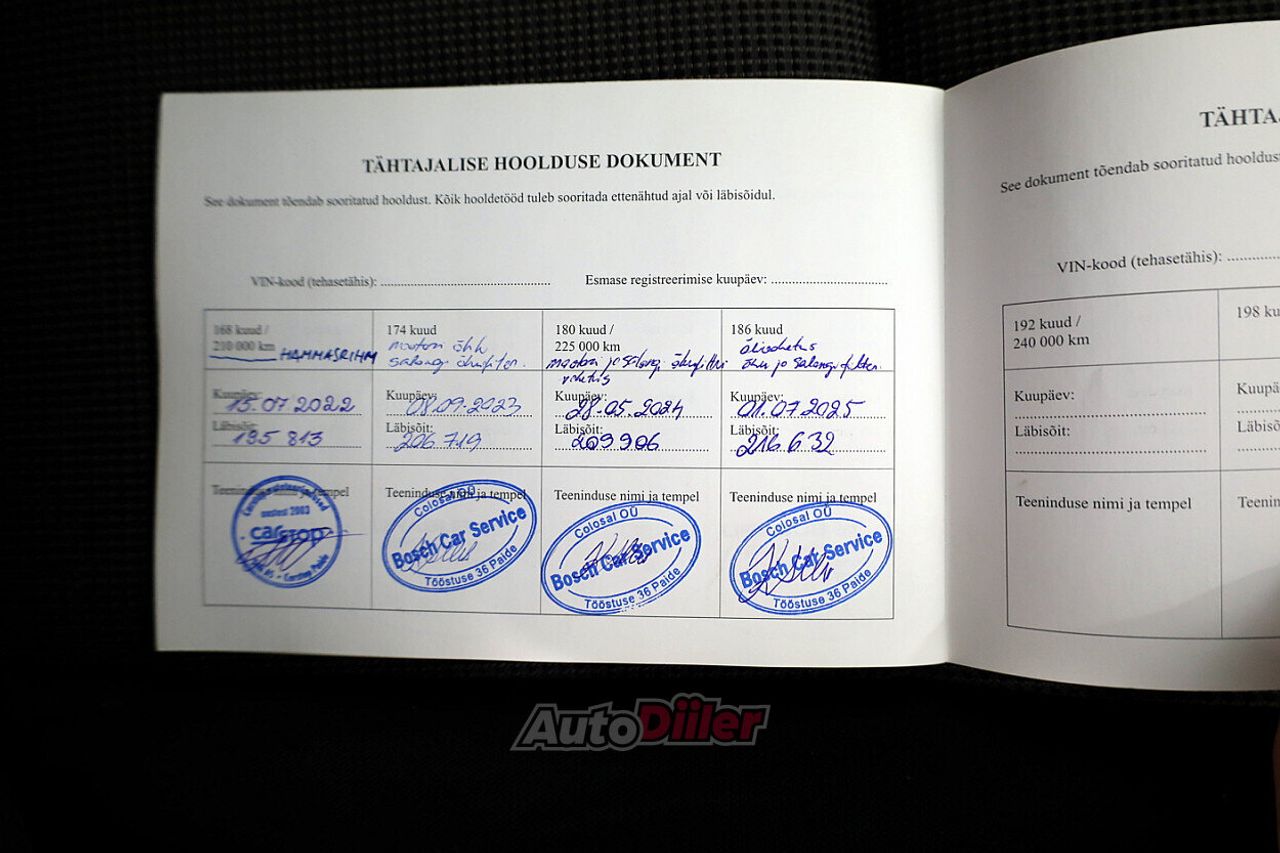 TÄHTAJALISE HOOLDUSE DOKUMENT
See dokument tõendab sooritatud hooldust. Kõik hooldetööd tuleb sooritada ettenähtud ajal või läbisõidul.
VIN-kood (tehasetähis): ............................................... Esmase registreerimise kuupäev: .................................
168 kuud /
210 000 km HAMMASRIHM
Kuupäev:
15.07 2022
Läbisõit:
195 813
Teeninduse nimi ja tempel
aastast 2003
carstop
174 kuud
mootori õhk
salongi õhufilter.
Kuupäev:
08.09.2023
Läbisõit:
206 719
Teeninduse nimi ja tempel
Colosal OÜ
Bosch Car Service
Tööstuse 36 Paide
180 kuud /
225 000 km
mootori ja salongi õhufiltri
vahetus
Kuupäev:
28.05.2024
Läbisõit:
209906
Teeninduse nimi ja tempel
Colosal OÜ
Bosch Car Service
Tööstuse 36 Paide
186 kuud
õlivahetus
õhu ja salongifilter.
Kuupäev:
01.07 2025
Läbisõit:
216 632
Teeninduse nimi ja tempel
Colosal OÜ
Bosch Car Service
Tööstuse 36 Paide
TÄHTA
See dokument tõendab sooritatud hooldus
VIN-kood (tehasetähis): ..............
192 kuud /
240 000 km
Kuupäev:
Läbisõit:
Teeninduse nimi ja tempel
198 ku
Kuupä
Läbisõ
Teenin
AutoDiiler